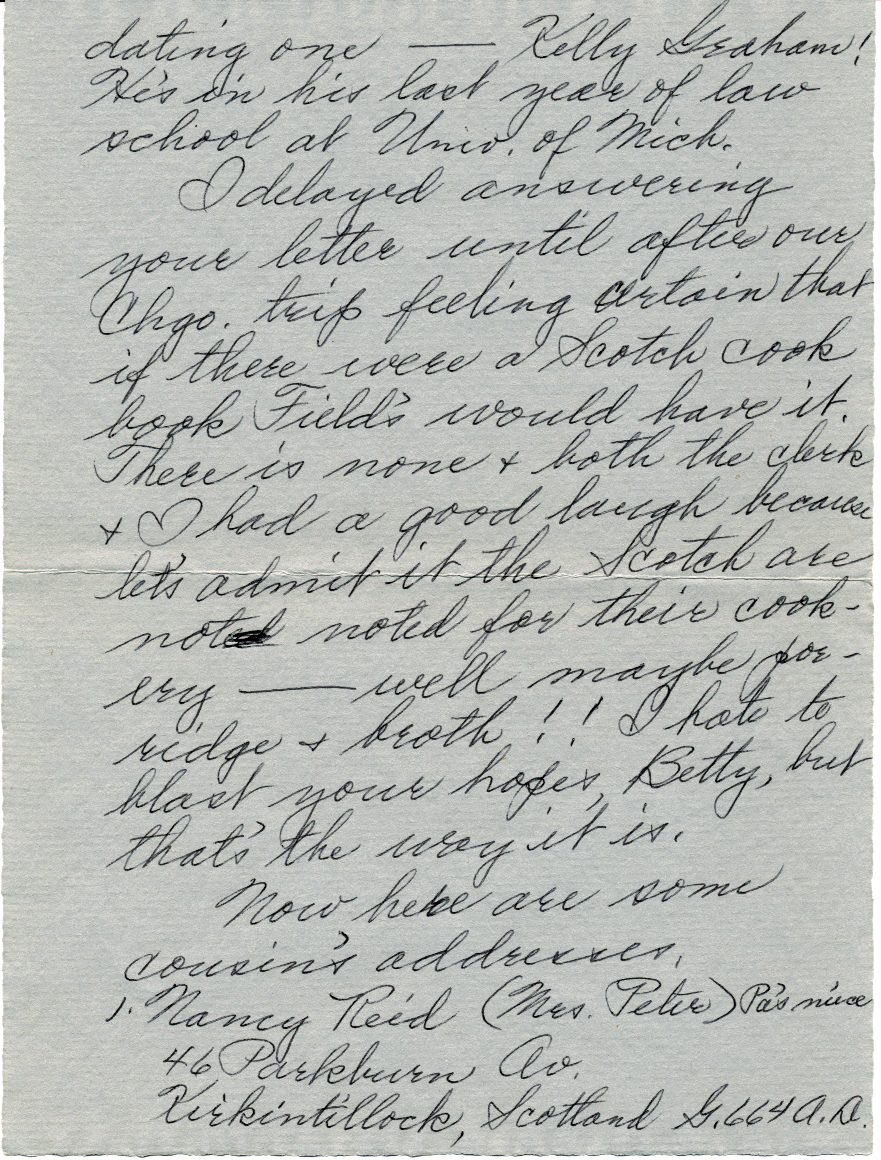 dating one — Kelly Graham!
He's in his last year of law
school at Univ. of Mich.
I delayed answering
your letter until after our
Chgo. trip feeling certain that
if there were a Scotch cook
book Field's would have it.
There is none + both the clerk
+ I had a good laugh because
let's admit it the Scotch are
not noted for their cook-
ery — well maybe por-
ridge + broth!! I hate to
blast your hopes, Betty, but
that's the way it is.
Now here are some
cousin's addresses.
1. Nancy Reid (Mrs. Peter) Pa's niece
46 Parkburn Av.
Kirkintillock, Scotland G.664 A.D.